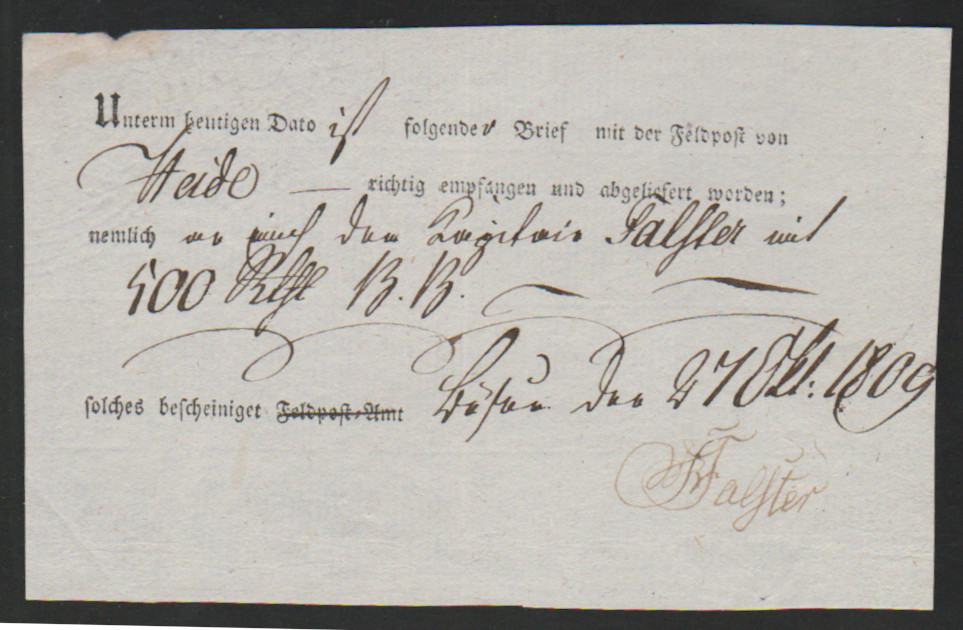 Unterm heutigen Dato ist folgender Brief mit der Feldpost von
Heide — richtig empfangen und abgeliefert worden;
nemlich an mich den Capitain Falster mit
500 Rthl B. B.
solches bescheiniget Feldpost-Amt Büsum den 27 Okt: 1809
Falster